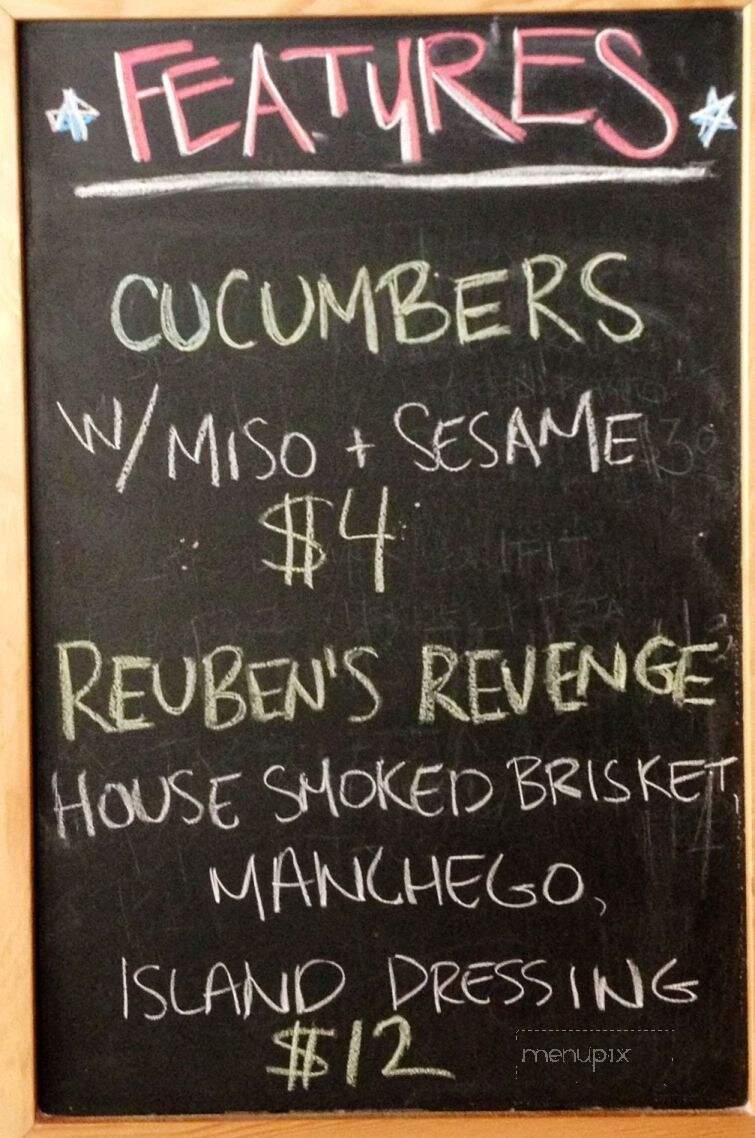 FEATURES
CUCUMBERS
W/ MISO + SESAME
$4
REUBEN'S REVENGE
HOUSE SMOKED BRISKET,
MANCHEGO,
ISLAND DRESSING
$12
menupix